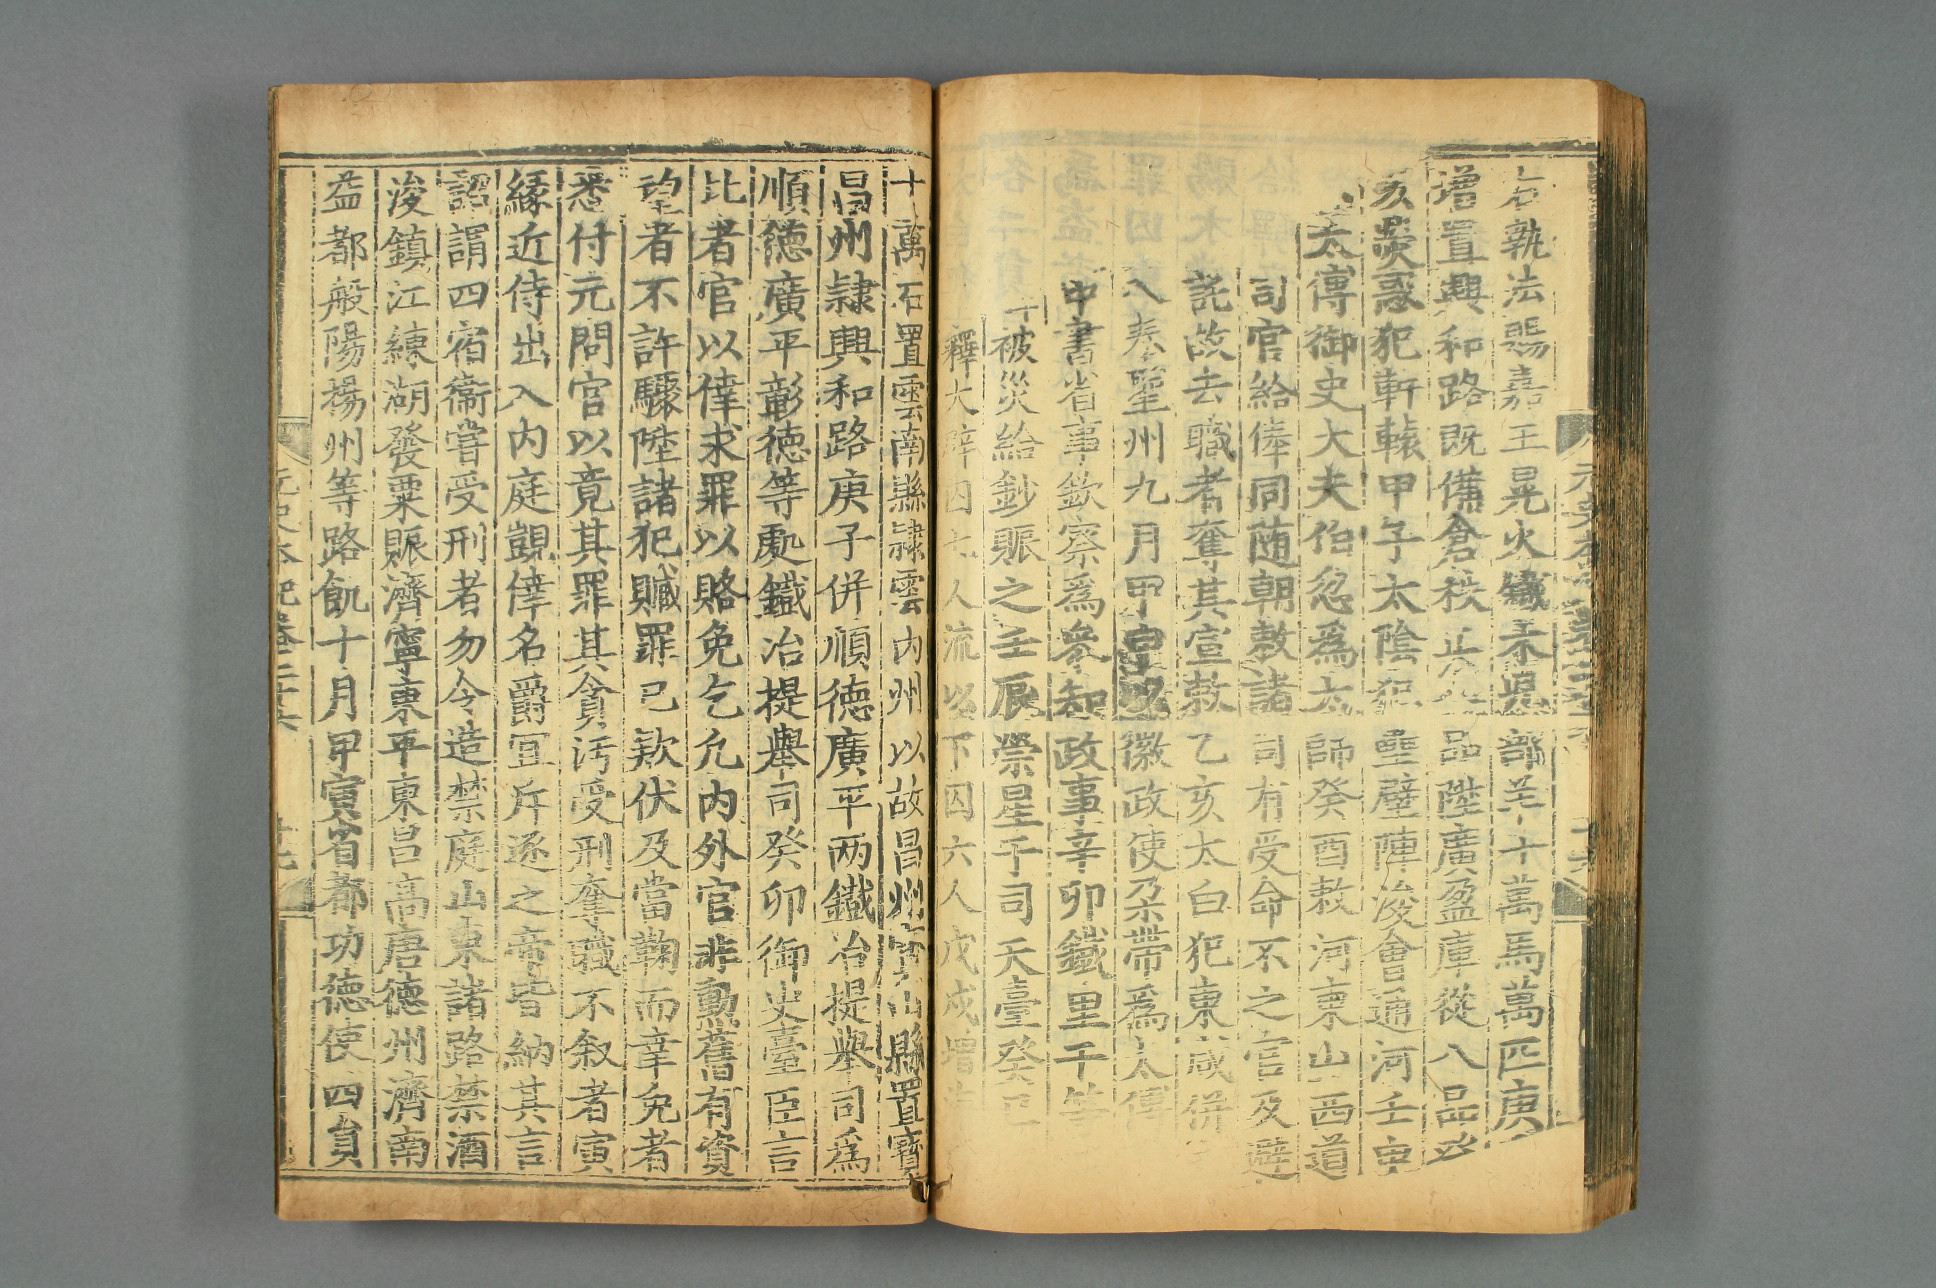 右執法賜嘉王晃火鐵禾鼎部羊十萬馬萬匹庚
增置興和路既備倉秩正八品陞廣盈庫從八品必
亥熒惑犯軒轅甲子太陰犯壘壁陣浚會通河壬申
太傅御史大夫伯忽爲太師癸酉敕河東山西道
司官給俸同隨朝敕諸司有受命不之官及避
託故去職者奪其宣敕乙亥太白犯東咸併
入奏聖州九月甲以徽政使朶帶爲太傅
中書省事欽察爲參知政事辛卯鐵里干等
十被災給鈔賑之壬辰熒星于司天臺癸巳
釋大辟囚七人流以下囚六人戊戌增
十萬石置雲南縣隷雲內州以故昌州寶山縣置寶
昌州隷興和路庚子併順德廣平兩鐵冶提舉司爲
順德廣平彰德等處鐵冶提舉司癸卯御史臺臣言
比者官以倖求罪以賂免乞允內外官非勳舊有資
望者不許驟陞諸犯贓罪已款伏及當鞫而幸免者
悉付元問官以竟其罪其貪汚受刑奪職不叙者寅
緣近侍出入內庭覬倖名爵宜斥逐之帝皆納其言
詔謂四宿衞嘗受刑者勿令造禁庭山東諸路禁酒
浚鎮江練湖發粟賑濟寧東平東昌高唐德州濟南
益都般陽揚州等路飢十月甲寅省都功德使四員
元史本紀卷二十六 十九